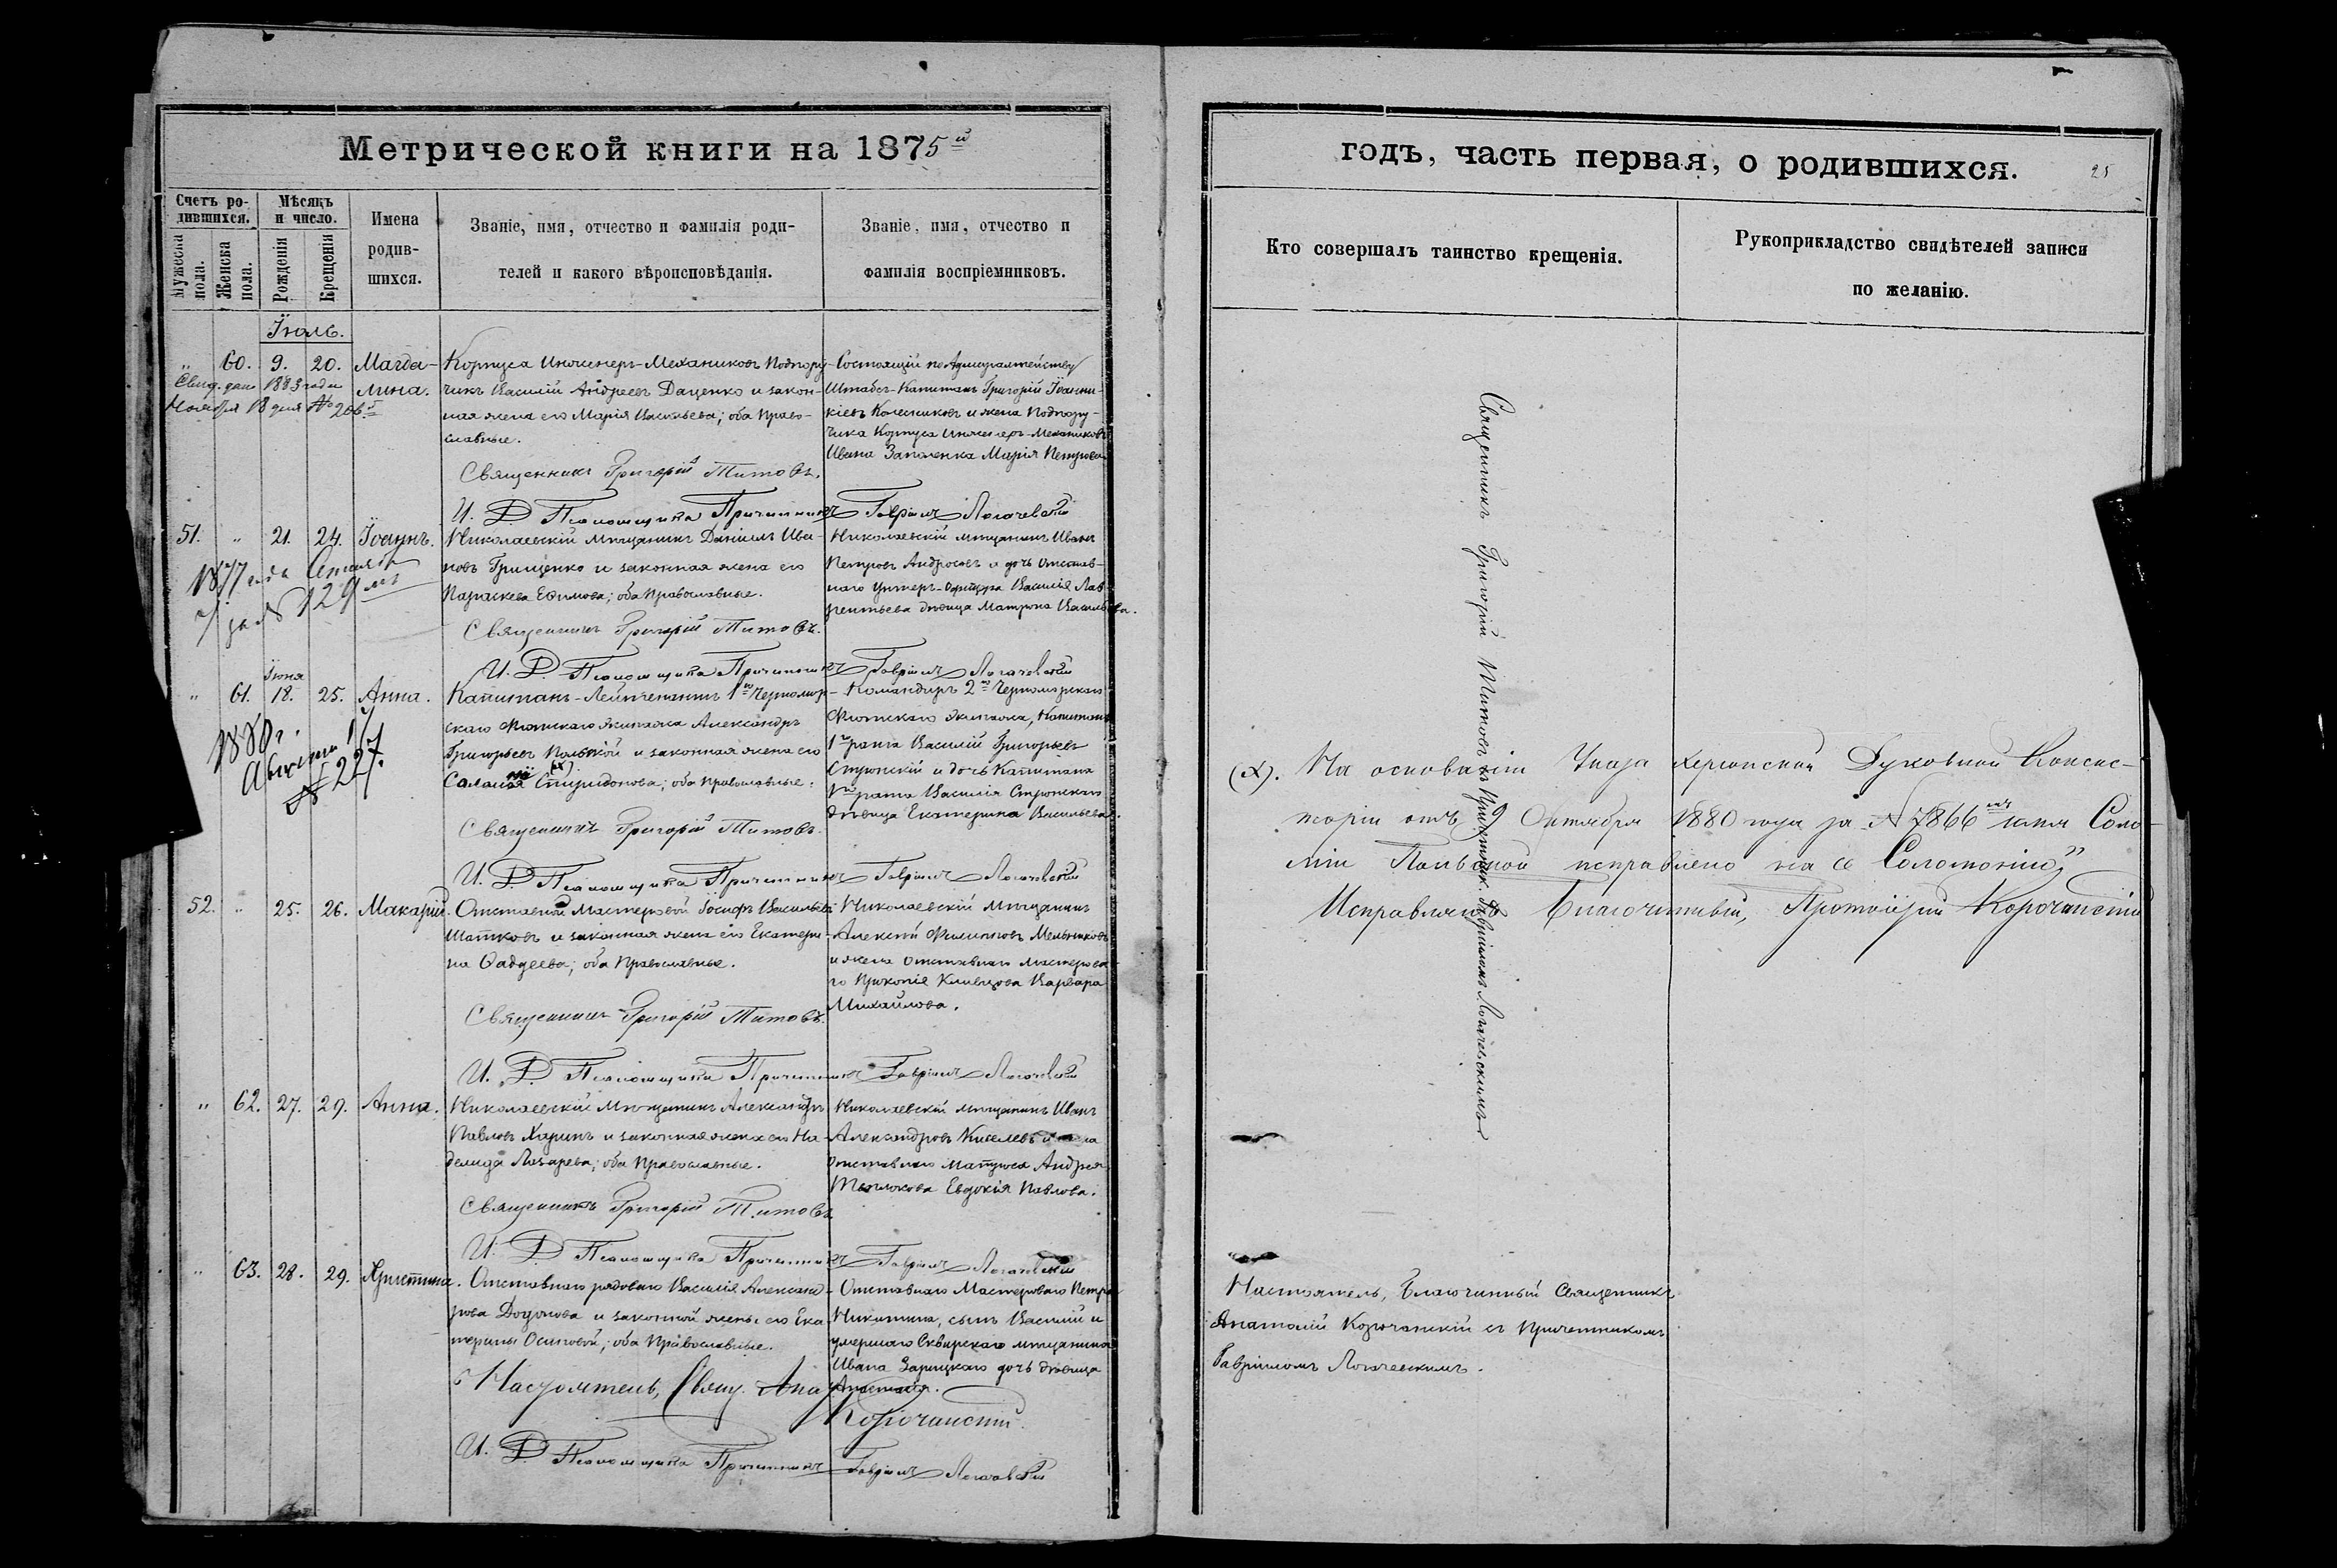 Метрической книги на 1875й
Счетъ родившихся.
Мѣсяцъ и число.
Мужеска пола.
Женска пола.
Рожденія
Крещенія
Имена родившихся.
Званіе, имя, отчество и фамилія роди-
телей и какого вѣроисповѣданія.
Званіе, имя, отчество и
фамилія воспріемниковъ.
Іюль.
" 60. 9. 20. Магда-
лина.
Свид. дано 1883 года
Ноября 18 дня № 206.
Корпуса Инженеръ-Механиковъ Подпору-
чикъ Василій Андреевъ Даценко и закон-
ная жена его Марія Васильева; оба право-
славные.
Состоящій по Адмиралтейству
Штабсъ-Капитанъ Григорій Іоанни-
кіевъ Колесниковъ и жена Подпору-
чика Корпуса Инженеръ-Механиковъ
Ивана Марія Петрова
Священникъ Григорій Титовъ.
И. Д. Псаломщика Причетникъ Гавріилъ Логачевскій
51. " 21. 24. Іоаннъ.
1877 года
за № 129
Николаевскій мѣщанинъ Даніилъ Ива-
новъ Грищенко и законная жена его
Параскева Ефимова; оба православные.
Николаевскій мѣщанинъ Иванъ
Петровъ Андросовъ и дочь отстав-
наго унтеръ-офицера Василія Лав-
рентьева дѣвица Матрона Васильева.
Священникъ Григорій Титовъ.
И. Д. Псаломщика Причетникъ Гавріилъ Логачевскій
Іюня
" 61. 18. 25. Анна.
1880 г.
Августа 1
№ 227.
Капитанъ-Лейтенантъ 1го Черномор-
скаго Флотскаго экипажа Александръ
Григорьевъ Польской и законная жена его
(х)
Спиридонова; оба православные.
Командиръ 2го Черноморскаго
Флотскаго экипажа, Капитанъ
1го ранга Василій Григорьевъ
Стронскій и дочь Капитана
1го ранга Василія Стронскаго
дѣвица Екатерина Васильева.
Священникъ Григорій Титовъ.
И. Д. Псаломщика Причетникъ Гавріилъ Логачевскій
52. " 25. 26. Макарій.
Отставной Мастеровой Іосифъ Васильевъ
Шатковъ и законная жена его Екатери-
на Фаддеева; оба православные.
Николаевскій мѣщанинъ
Алексѣй Филипповъ Мельниковъ
и жена отставнаго мастерова-
го Прокопія Варвара
Михайлова.
Священникъ Григорій Титовъ.
И. Д. Псаломщика Причетникъ Гавріилъ Логачевскій
" 62. 27. 29. Анна.
Николаевскій мѣщанинъ Александръ
Павловъ Харинъ и законная жена его На-
дежда Лазарева; оба православные.
Николаевскій мѣщанинъ Иванъ
Александровъ Киселевъ и жена
отставнаго матроса Андрея
Евдокія Павлова.
Священникъ Григорій Титовъ
И. Д. Псаломщика Причетникъ Гавріилъ Логачевскій
" 63. 28. 29. Христина.
Отставнаго рядоваго Василія Александ-
рова Додонова и законной жены его Ека-
терины Осиповой; оба православные.
Отставнаго Мастероваго Петра
Никитина, сынъ Василій и
умершаго Сквирскаго мѣщанина
Ивана Зарицкаго дочь дѣвица
Анастасія.
Настоятель, Свящ. Ана Корочанскій
И. Д. Псаломщика Причетникъ Гавріилъ Логачевскій
годъ, часть первая, о родившихся.
25
Кто совершалъ таинство крещенія.
Рукоприкладство свидѣтелей записи
по желанію.
Священникъ Григорій Титовъ съ Причетник. Гавріиломъ Логачевскимъ
(х). На основаніи Указа Херсонской Духовной Консис-
торіи отъ 9 Октября 1880 года за № 7866 имя Соло-
міи Польской исправлено на „Соломонію"
Исправлялъ Благочинный, Протоіерей Корочанскій
Настоятель, Благочинный Священникъ
Анатолій Корочанскій съ причетникомъ
Гавріиломъ Логачевскимъ.